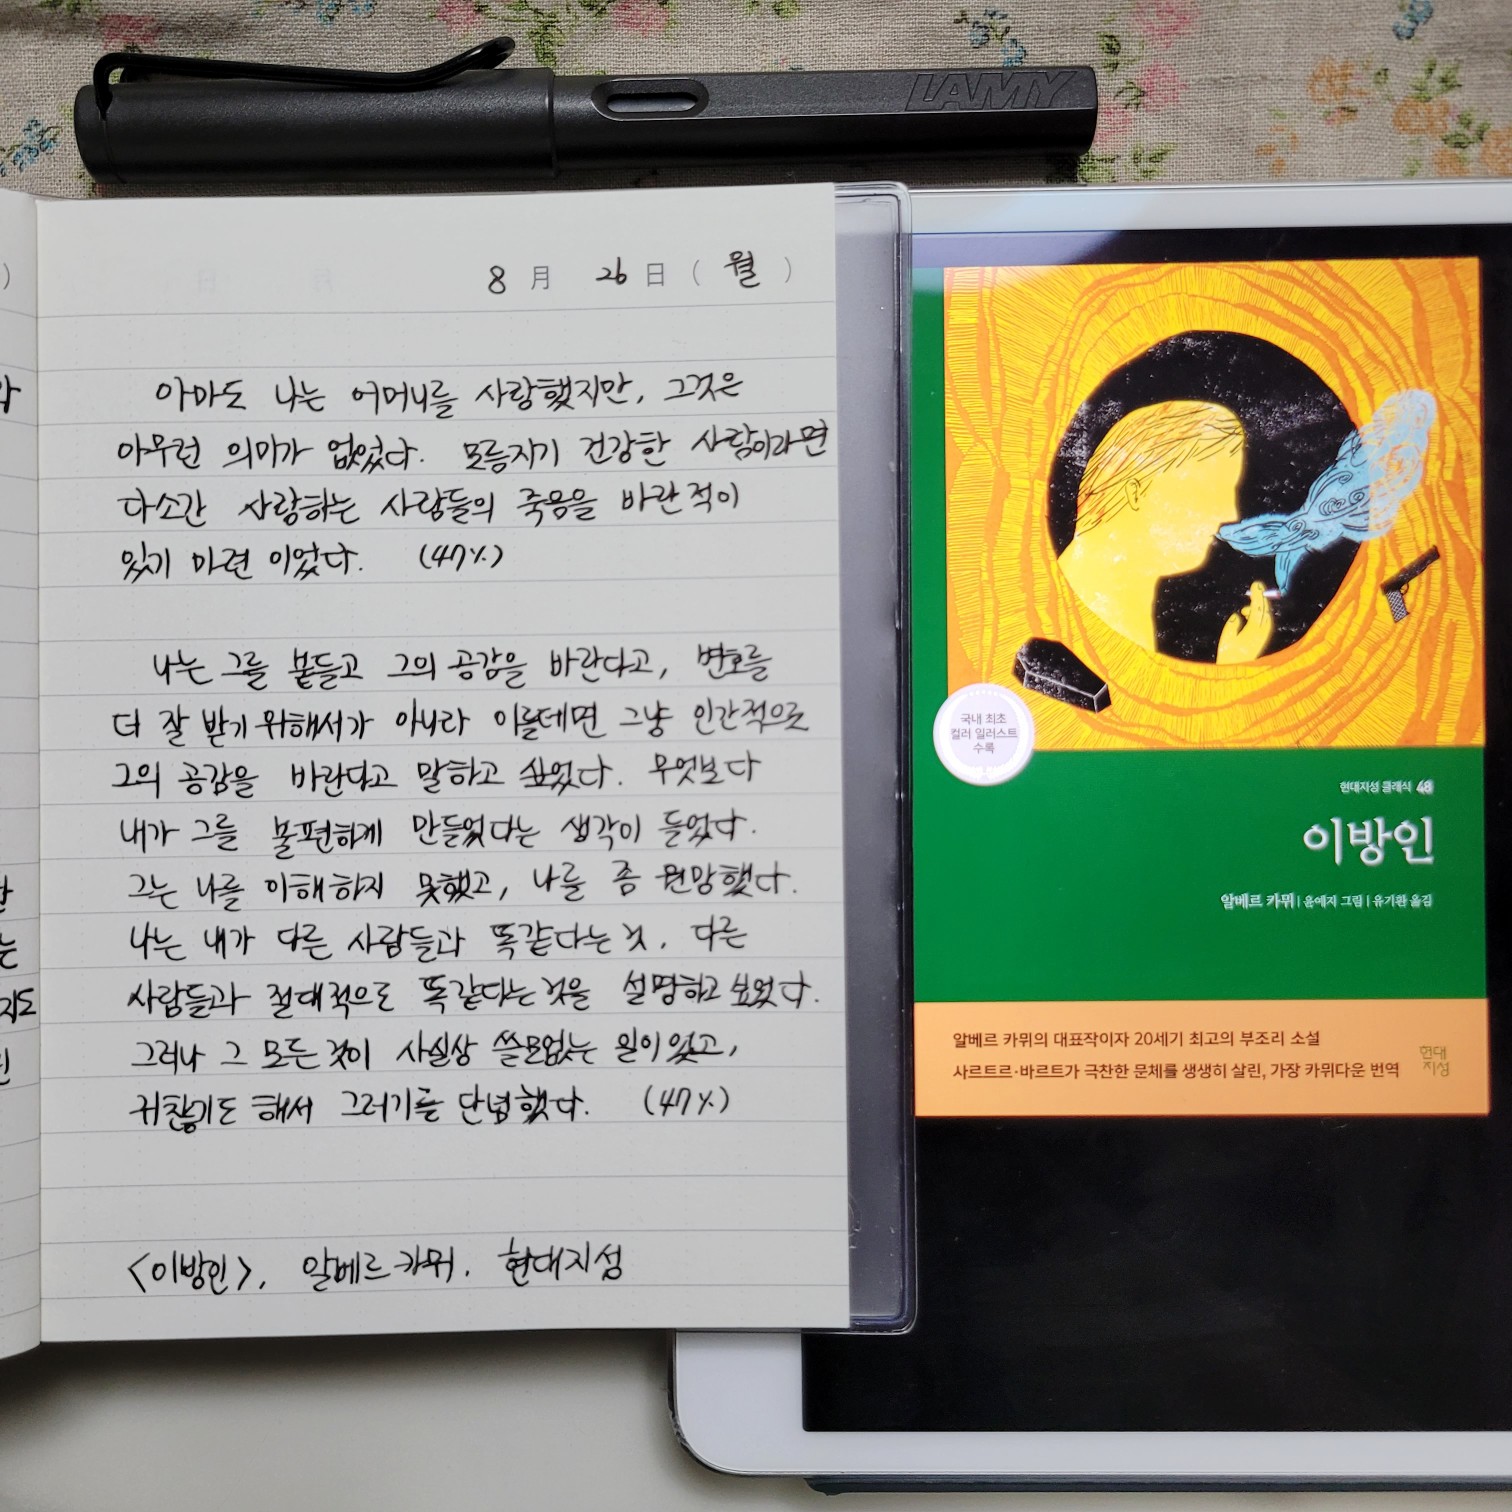 LAMY
8 月 26 日 ( 월 )
아마도 나는 어머니를 사랑했지만, 그것은
아무런 의미가 없었다. 모름지기 건강한 사람이라면
다소간 사랑하는 사람들의 죽음을 바란 적이
있기 마련 이었다. (47%)
나는 그를 붙들고 그의 공감을 바란다고, 변호를
더 잘 받기 위해서가 아니라 이를테면 그냥 인간적으로
그의 공감을 바란다고 말하고 싶었다. 무엇보다
내가 그를 불편하게 만들었다는 생각이 들었다.
그는 나를 이해하지 못했고, 나를 좀 원망했다.
나는 내가 다른 사람들과 똑같다는 것, 다른
사람들과 절대적으로 똑같다는 것을 설명하고 싶었다.
그러나 그 모든 것이 사실상 쓸모없는 일이었고,
귀찮기도 해서 그러기를 단념했다. (47%)
<이방인>, 알베르 카뮈. 현대지성
국내 최초
컬러 일러스트
수록
현대지성 클래식 48
이방인
알베르 카뮈 | 윤예지 그림 | 유기환 옮김
알베르 카뮈의 대표작이자 20세기 최고의 부조리 소설
사르트르·바르트가 극찬한 문체를 생생히 살린, 가장 카뮈다운 번역
현대
지성